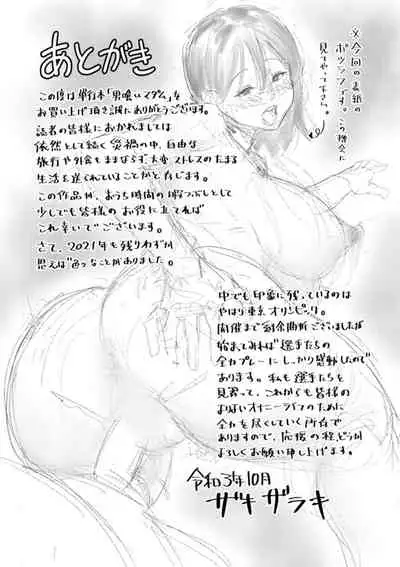 あとがき
この度は単行本「男喰いマダム」を
お買い上げ頂き誠にありがとうございます。
読者の皆様におかれましては
依然として続く災禍の中、自由な
旅行や外食もままならず大変ストレスのたまる
生活を送られていることかと存じます。
この作品が、おうち時間の暇つぶしとして
少しでも皆様のお役に立てれば
これ幸いでございます。
さて、2021年も残りわずか
思えば色々なことがありました。
中でも印象に残っているのは
やはり東京オリンピック。
開催まで紆余曲折ございましたが
始まってみれば選手たちの
全力プレーにしっかり感動したので
あります。私も選手たちを
見習って、これからも皆様の
よりよいオナニーライフのために
全力を尽くしていく所存で
ありますので、応援の程、どうか
よろしくお願い申し上げます。
令和3年10月
ザキザラキ
※今回の表紙の
ボツラフです。この機会に
見てやって下さい。